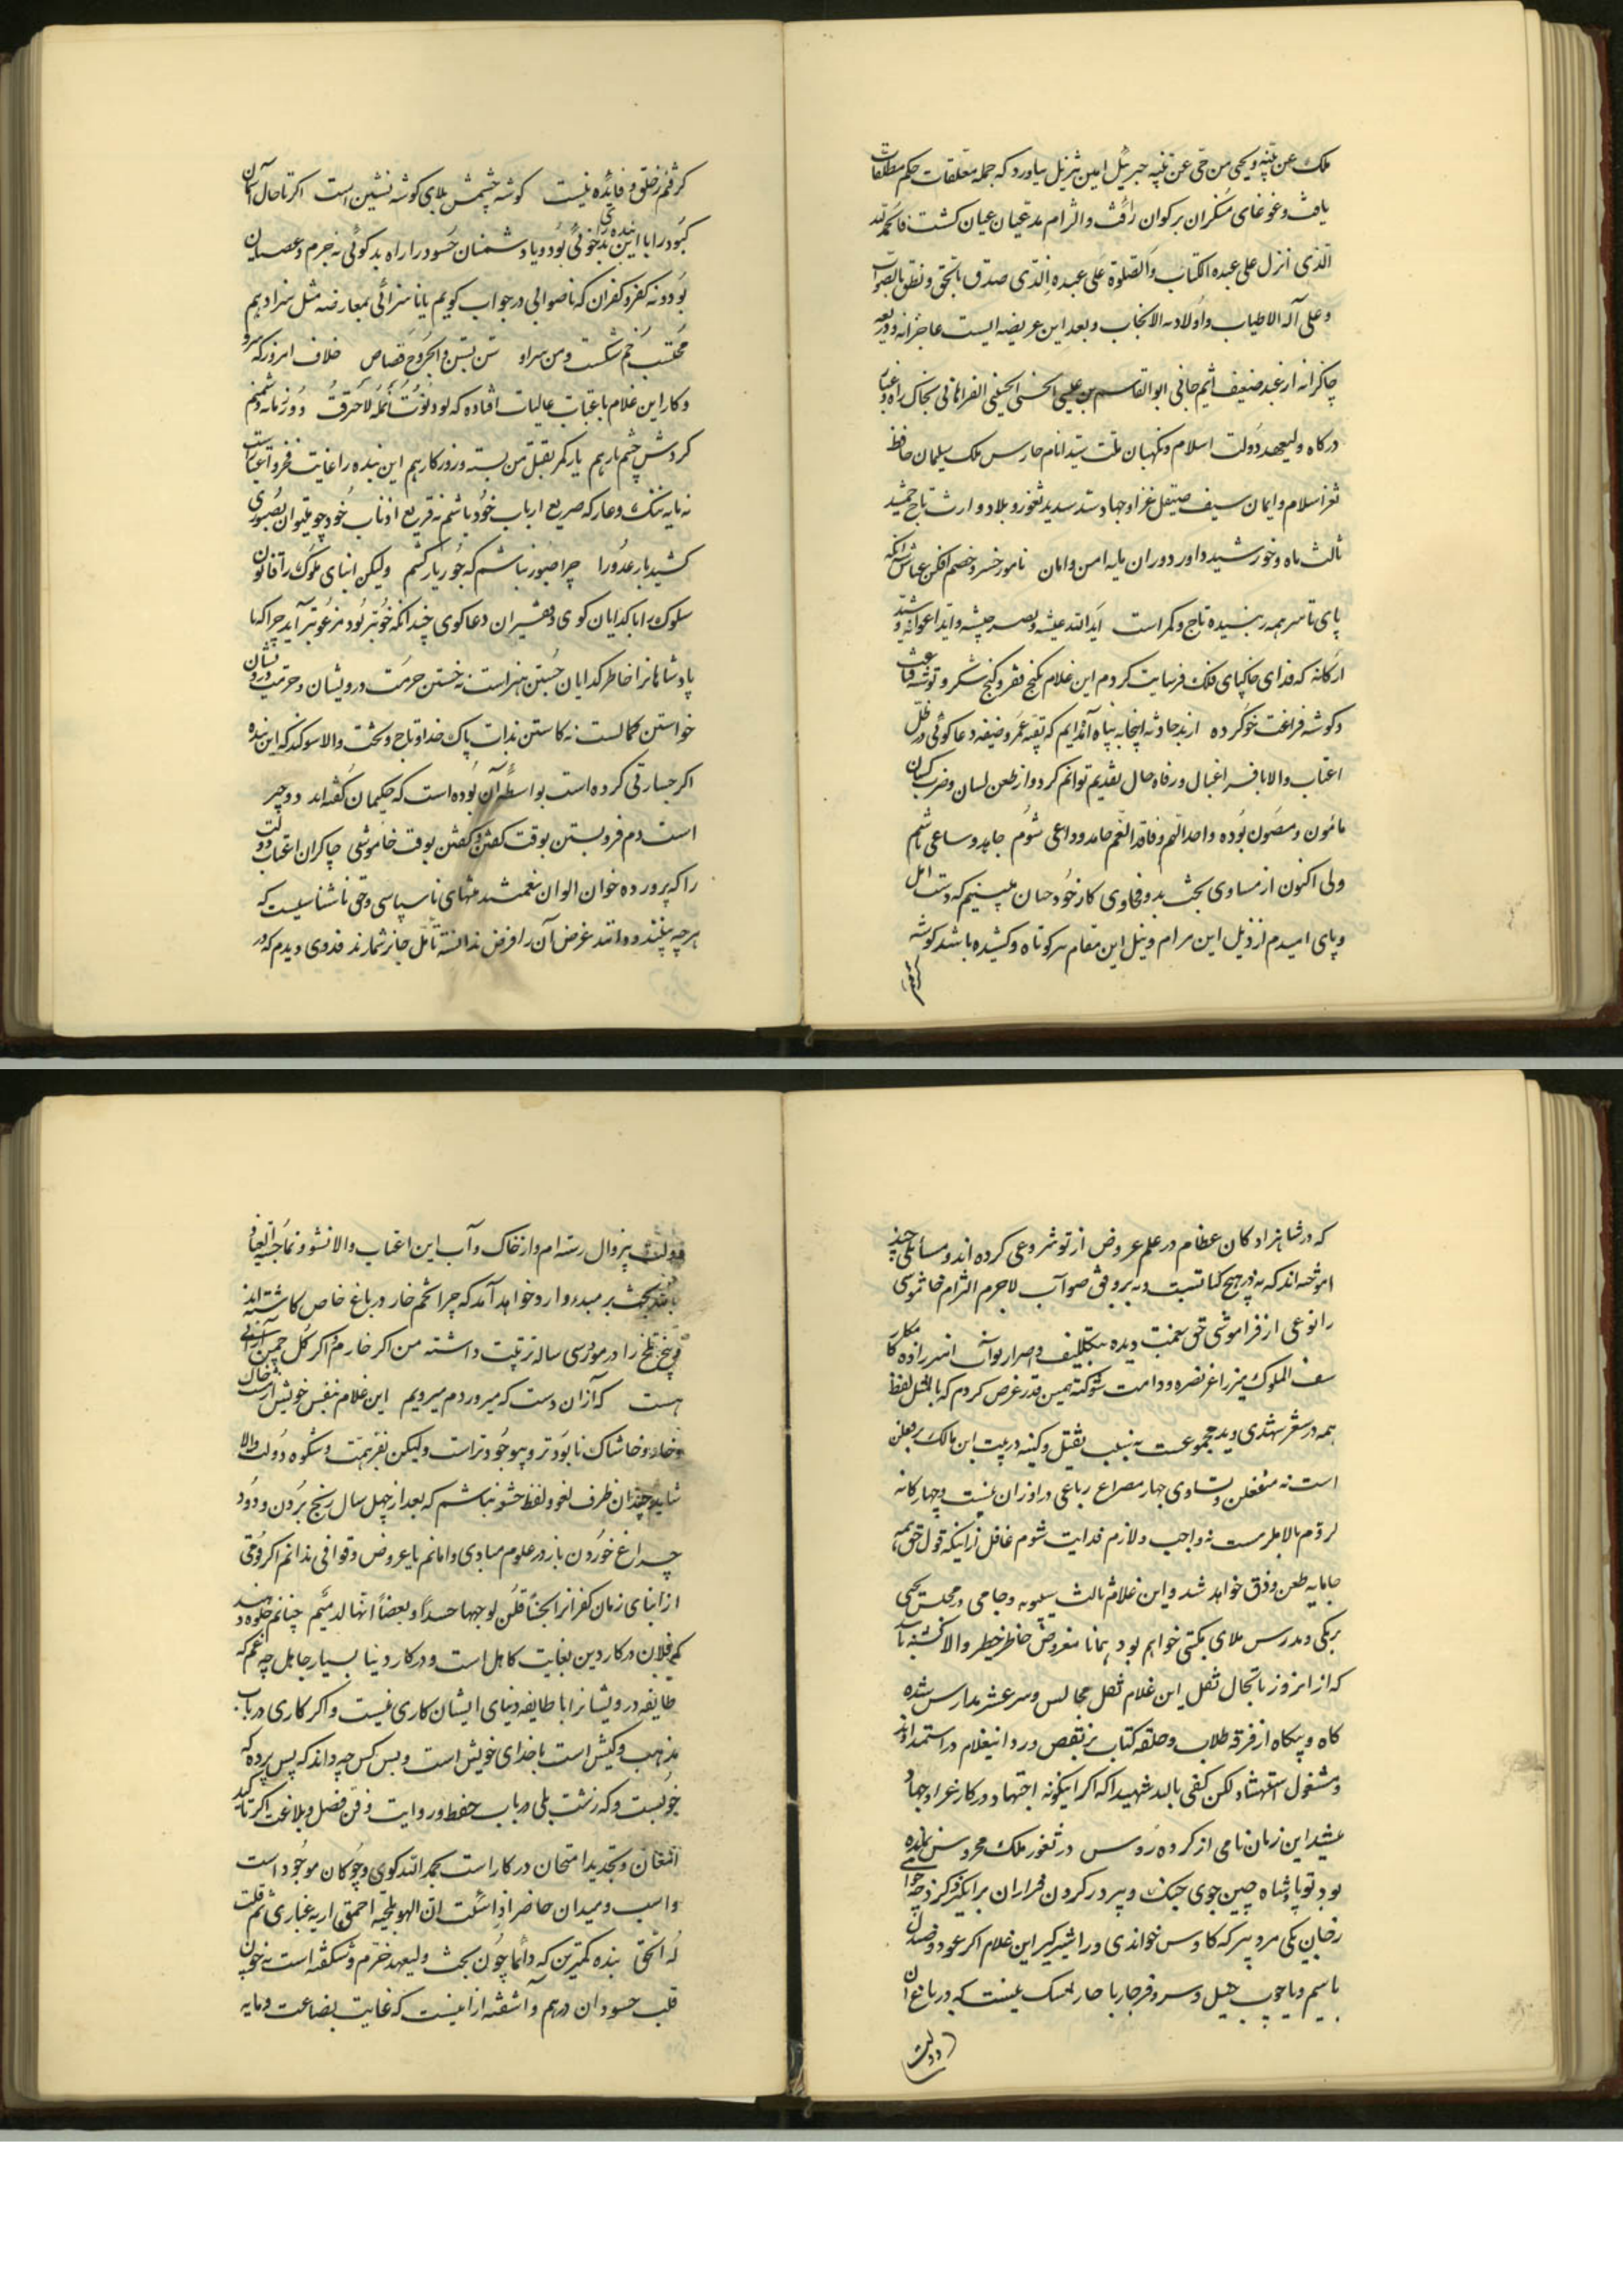 ملک عن بینه ویحیی من حی عن بینه جبرئیل امین تنزیل بیاورد که جمله معلقات حکم مطلقات
یافت و غوغای منکران برکران رفت والزام مدعیان عیان کشت فالحمدلله
الذی انزل علی عبده الکتاب والصلوة علی عبده الذی صدق بالحق ونطق بالصواب
وعلی آله الاطیاب واولاده الانجاب وبعد این عریضه ایست عاجزانه و ذریعه
چاکرانه از عبد ضعیف اثیم جانی ابوالقاسم بن عیسی الحسنی الحسینی الفراهانی بخاک راه واعتاب
درکاه ولیعهد دولت اسلام ونکهبان ملت سید انام حارس ملک سلیمان حافظ
ثغر اسلام وایمان سیف صیقل غزا وجهاد سد سدید ثغور و بلاد وارث تاج جمشید
ثالث ماه وخورشید داور دوران مایه امن وامان نامور خسرو خصم افکن عباس شه آنکه
پای تا سر همه زیبنده تاج وکمر است ایدالله عیشه ونصر جیشه واید اعوانه وشید
ارکانه که فدای خاکپای فلک فرسایت کردم این غلام بکنج فقر وکنج شکر وتوشه قناعت
وکوشه فراغت خو کرده از بد حادثه اینجا به پناه آمده‌ایم که بقیه عمر وظیفه دعا کوئی در ظل
اعتاب والا بافر اغبال ورفاه حال تقدیم توانم کرد واز طعن لسان وضرب سنان کسان
مامون ومصون بوده واجد النعم وفاقد الغم حامد وداعی شوم جاهد وساعی باشم
ولی اکنون از مساوی بخت بد وفحاوی کار خود چنان میبینم که دست امل
وپای امیدم از ذیل این مرام ونیل این مقام کوتاه وکشیده باشد کوشه
کرفتم زخلق وفایده نیست کوشه چشمش بلای کوشه نشین است اکر تا حال آسمان
کبود را با این بنده بدخوئی بود ویا دشمنان حسود را راه بدکوئی نه جرم وعصیان
بود ونه کفر وکفران که ناصوابی در جواب کویم یا ناسزائی بمعارضه مثل سزا دهم
محتسب خم شکست ومن سر او سن بسن والجروح قصاص خلاف امروز که سر و
وکار این غلام با عتبات عالیات افتاده که لو دنوت انملة لاحترقت دور زمانه دشمنم
کردش چشم یار هم یار کمر بقتل من بسته و روزکار هم این بنده را غایت فخر واعتبار است
نه مایه ننک وعار که صریع ارباب خود باشم نه قریع اذناب خود چو میتوان بصبوری
کشید بار عدو را چرا صبور نباشم که جور یار کشم ولیکن ابنای ملوک را قانون
سلوک با کدایان کوی وفقیران دعا کوی چندانکه خوبتر بود مرغوبتر آید چرا که با
پادشاهانرا خاطر کدایان جستن هنر است نه خستن حرمت درویشان وحرمت
خواستن کمالست نه کاستن بذات پاک خدا وتاج وتخت والا سوکند که این بنده
اکر جسارتی کرده است بواسطه آن بوده است که حکیمان کفته‌اند دو چیز
است دم فرو بستن بوقت کفتن وکفتن بوقت خاموشی چاکران اعتاب دولت
را که پرورده خوان الوان نعمتند منتهای ناسپاسی وحق ناشناسیست که
هر چه ببینند ودانند عرض آن را فرض ندانسته تأمل جائز شمارند فدوی دیدم که در
که در شاهزادکان عظام در علم عروض از نو شروعی کرده‌اند ومسائلی چند
آموخته‌اند که نه در هیچ کتابست ونه بر وفق صواب لاجرم التزام خاموشی
را نوعی از فراموشی حق نعمت دیده بتکلیف واصرار نواب امیرزاده کامکار
سیف الملوک میرزا عز نصره ودامت شوکته همین قدر عرض کردم که بالمثل لفظ
همه در شعر سعدی وید مجموعست به نسب ثقیل وکینه در بیت ابن مالک بر فعلن
است نه مفتعلن وتساوی چهار مصراع رباعی در اوزان بیست وچهارکانه
لزوم مالایلزم است نه واجب ولازم فدایت شوم غافل از اینکه قول حق همه
جا مایه طعن ودق خواهد شد واین غلام ثالث سیبویه وجامی در مجلس یحیی
برمکی ومدرس ملای بکتی خواهم بود همانا معروض خاطر خطیر والا کشته باشد
که از انروز تا بحال ثقل این غلام نقل مجالس وسر عشر مدارس شده
کاه وبیکاه از فرقه طلاب وحلقه کتاب بر نقص ورد اینغلام در استمداد اند
ومشغول استشهاد لکن کفی بالله شهیدا که اکر اینکونه اجتهاد در کار غزا وجهاد
میشد این زمان نامی از کروه روس در ثغور ملک محروس نمانده
بود تو پادشاه چین جوی جنک وبپرور کردن فرازان
رضابن یکی مرد پیر که کاوس خواندی ورا شیر کیر این غلام اکر عود وصندل
یا سیم ویا چوب هیل وسرو فرخار یا خار خسک نیست که در باغ آن
دولت
دولت بیزوال رسته‌ام واز خاک وآب این اعتاب والا نشو ونما جسته العیاذ
بالله بحث بر مبدء وارد خواهد آمد که چرا تخم خار در باغ خاص کاشته‌اند
وبیخ تلخ را در مرز سی ساله تربیت داشته من اکر خارم واکر کل چمن آرائی
هست که از آن دست که میرورم میرویم این غلام بنفس خویش از مشت خاک
وخار وخاشاک نابودتر وبیوجودتر است ولیکن بفر همت وشکوه دولت والا
شاید چندان ظرف لغو ولفظ حشو نباشم که بعد از چهل سال رنج بردن ودود
چراغ خوردن باز در علوم مبادی وامانم یا عروض وقوافی ندانم اکر قومی
از ابنای زمان کضرائر الحسناء قلن لوجهها حسدا وبغضا انها لدمیم چنانم جلوه دهند
که فلان در کار دین بغایت کاهل است ودر کار دنیا بسیار جاهل چه غم که
طایفه درویشانرا با طایفه دنیای ایشان کاری نیست واکر کاری در باب
مذهب وکیش است با خدای خویش است وبس کس چه داند که پس پرده که
خوبست وکه زشت بلی در باب حفظ وروایت وفن فضل وبلاغت اکر تاکید
امتحان وتجدید امتحان در کار است بحمدالله کوی وچوکان موجود است
واسب ومیدان حاضر اذا شئت ان الهو بلحیة احمق اریه غباری ثم قلت
له الحق بنده کمترین که دائما چون بخت ولیعهد خرم وشکفته است نه چون
قلب حسودان درهم وآشفته از اینست که غایت بضاعت ومایه